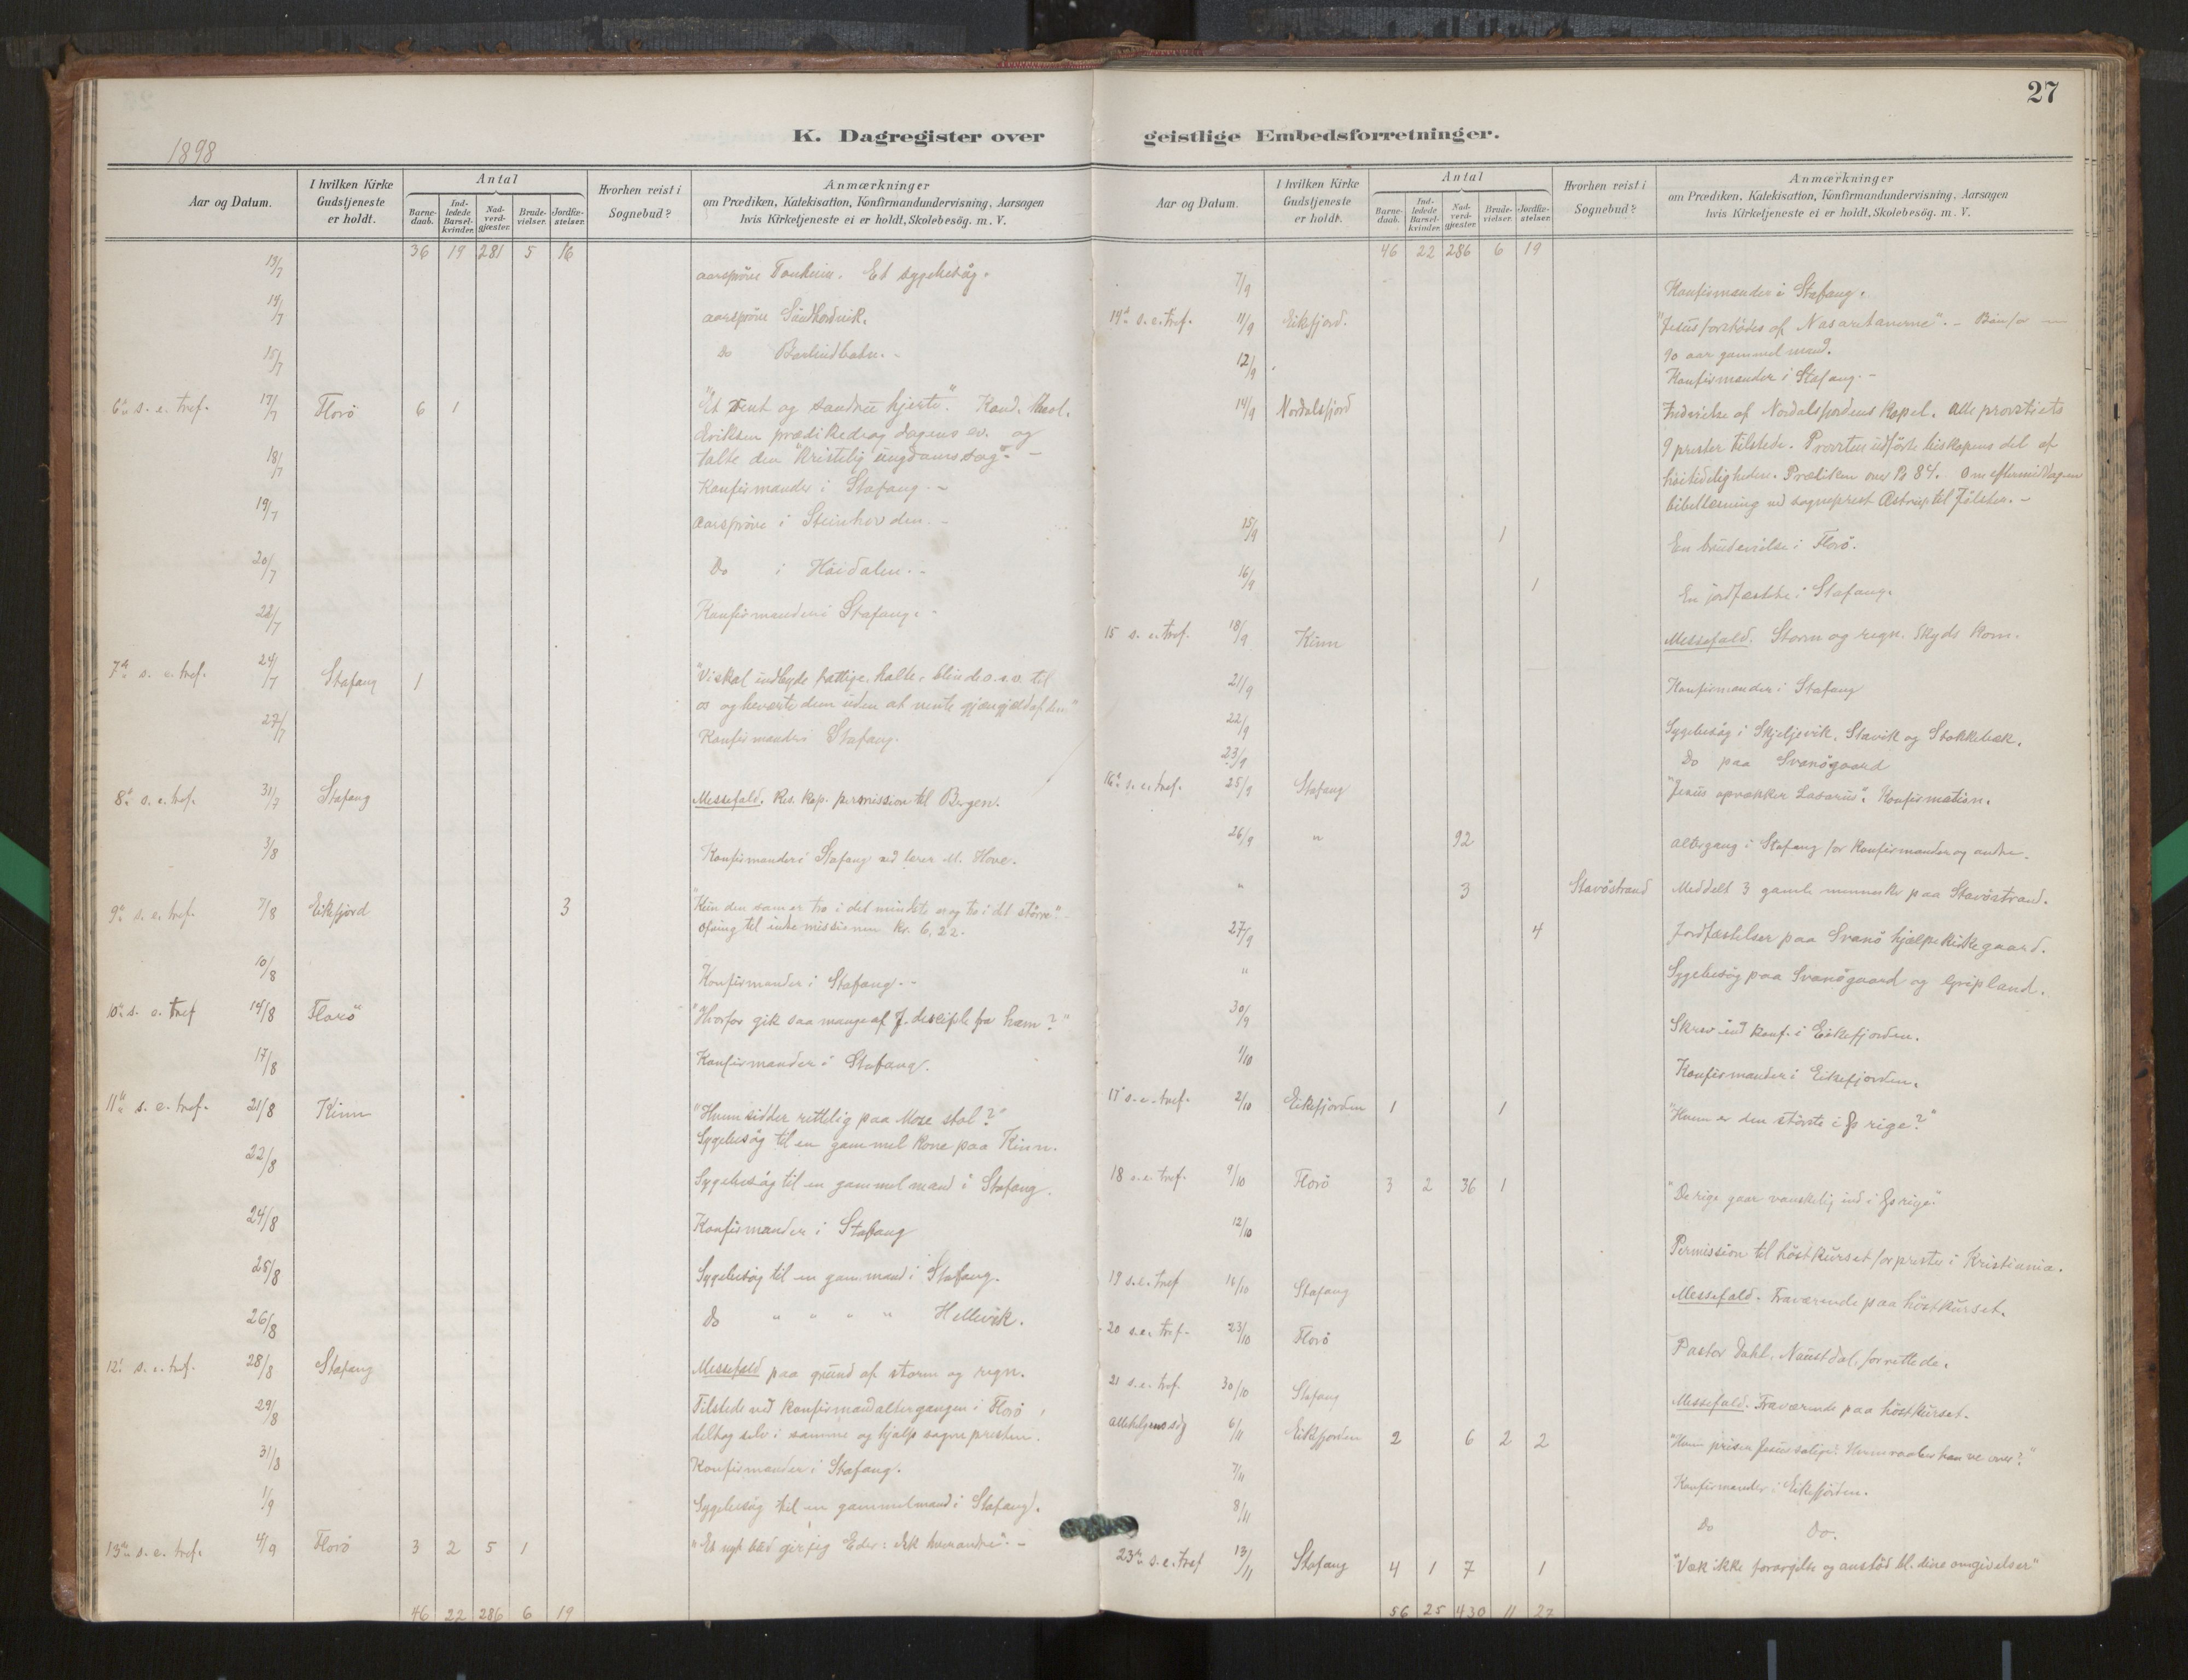 27
K. Dagregister over geistlige Embedsforretninger.
1898
Aar og Datum.
I hvilken Kirke Gudstjeneste er holdt.
Antal
Barnedaab.
Indledede Barselkvinder.
Nadverdgjæster.
Brudevielser.
Jordfæstelser.
Hvorhen reist i Sognebud?
Anmærkninger
om Prædiken, Katekisation, Konfirmandundervisning, Aarsagen
hvis Kirketjeneste ei er holdt, Skolebesög. m. V.
36 19 281 5 16
13/7 aarspröve Et sygebesög.
14/7 aarspröve
15/7 Do
6te s. e. tref. 17/7 Florö 6 1 "Et rent og sanddru hjerte". Kand. theol.
Eriksen prædikede dagens ev. og
talte den "kristelig ungdomssag". -
18/7 Konfirmander i Stafang. -
19/7 Aarspröve i Steinhovden. -
20/7 Do i Höidalen. -
22/7 Konfirmander i Stafang. -
7de s. e. tref. 24/7 Stafang 1 "Vi skal indbyde fattige, halte, blinde o.s.v. til
os og beverte dem uden at vente gjengjæld af dem"
27/7 Konfirmander i Stafang.
8de s. e. tref. 31/7 Stafang Messefald. Res. kap. permission til Bergen.
3/8 Konfirmander i Stafang ved lærer M. Hove.
9de s. e. tref. 7/8 Eikefjord 3 "Kun den som er tro i det mindste er og tro i det större". -
Ofring til indre missionen kr. 6,22.
10/8 Konfirmander i Stafang. -
10de s. e. tref 14/8 Florö "Hvorfor gik saa mange af J. disciple fra ham?"
17/8 Konfirmander i Stafang.
11te s. e. tref. 21/8 Kinn "Hvem sidder rettelig paa Mose stol?"
Sygebesög til en gammel kone paa Kinn.
22/8 Sygebesög til en gammel mand i Stafang.
24/8 Konfirmander i Stafang
25/8 Sygebesög til en gam. mand i Stafang.
26/8 Do " " " " Hellevik.
12te s. e. tref. 28/8 Stafang Messefald paa grund af storm og regn.
29/8 Tilstede ved konfirmandaltergangen i Florö,
deltog selv i samme og hjalp sognepresten.
31/8 Konfirmander i Stafang.
1/9 Sygebesög til en gammel mand i Stafang.
13de s. e. tref. 4/9 Florö 3 2 5 1 "Et nyt bud gir jeg Eder: elsk hverandre". -
46 22 286 6 19
Aar og Datum.
I hvilken Kirke Gudstjeneste er holdt.
Antal
Barnedaab.
Indledede Barselkvinder.
Nadverdgjæster.
Brudevielser.
Jordfæstelser.
Hvorhen reist i Sognebud?
Anmærkninger
om Prædiken, Katekisation, Konfirmandundervisning, Aarsagen
hvis Kirketjeneste ei er holdt, Skolebesög. m. V.
46 22 286 6 19
7/9 Konfirmander i Stafang.
14de s. e. tref. 11/9 Eikefjord. "Jesus forsködes af Nasaretanerne". -
90 aar gammel mand.
12/9 Konfirmander i Stafang. -
14/9 Nordalsfjord Indvielse af Nordalsfjordens kapel. Alle provstiets
9 prester tilstede. Provsten udförte biskopens del af
höitideligheden. Prædiken over Ps 84. Om eftermiddagen
bibellæsning ved sogneprest Astrup til Jölster. -
15/9 1 En brudevielse i Florö.
16/9 1 En jordfæstelse i Stafang.
15 s. e. tref. 18/9 Kinn Messefald. Storm og regn. Skyds kom.
21/9 Konfirmander i Stafang
22/9 Sygebesög i Skjeljevik, Stavik og Stokkebæk.
23/9 Do paa Svanögaard
16de s. e. tref. 25/9 Stafang "Jesus opvækker Lasarus". Konfirmation.
26/9 " 92 Altergang i Stafang for konfirmander og andre.
" 3 Stavöstrand Meddelt 3 gamle mennesker paa Stavöstrand.
27/9 4 Jordfæstelser paa Svanö hjælpekirkegaard.
" Sygebesög paa Svanögaard og Gripland.
30/9 Skrev ind konf. i Eikefjorden.
1/10 Konfirmander i Eikefjorden.
17de s. e. tref. 2/10 Eikefjorden 1 1 "Hvem er den störste i Gs rige?"
18 s. e. tref. 9/10 Florö 3 2 36 1 "De rige gaar vanskelig ind i Gs rige."
12/10 Permission til höstkurset for prester i Kristiania.
19 s. e. tref 16/10 Stafang Messefald. Fraværende paa höstkurset.
20 s. e. tref. 23/10 Florö Pastor Dahl, Naustdal, forrettede.
21 s. e. tref. 30/10 Stafang Messefald. Fraværende paa höstkurset.
Allehelgensdg 6/11 Eikefjorden 2 6 2 2 "Hvem priser Jesus salige? Hvem raaber han ve over?"
7/11 Konfirmander i Eikefjorden.
8/11 Do Do.
23de s. e. tref 13/11 Stafang 4 1 7 1 "Væk ikke forargelse og anstöd bl. dine omgivelser"
56 25 430 11 27